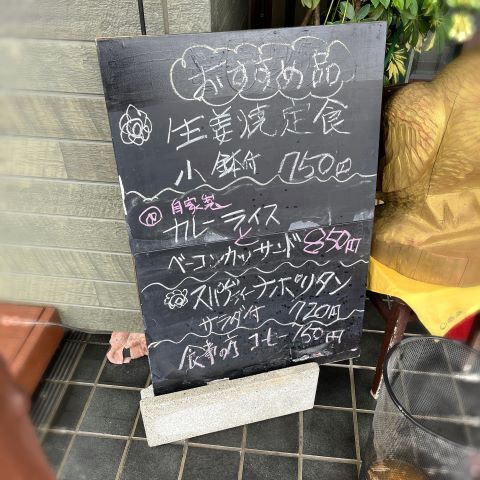 おすすめ品
生姜焼定食
小鉢付 750円
自家製
カレーライス
と
ベーコンカツサンド 850円
スパゲティーナポリタン
サラダ付 720円
食事の方 コーヒー150円